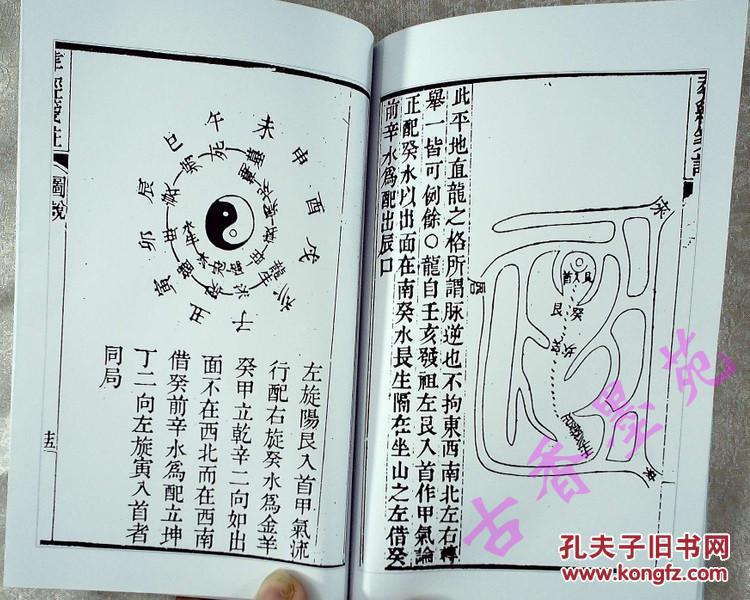 此平地直龍之格所謂脉逆也不拘東西南北左右轉
舉一皆可例餘○龍自壬亥發祖左艮入首作甲氣論
正配癸水以出面在南癸水長生隔在坐山之左借癸
前辛水爲配出辰口
艮入首
艮
癸
亥
壬
辰
圖說
午
未
申
酉
戌
亥
子
丑
寅
卯
辰
巳
左旋陽艮入首甲氣流
行配右旋癸水爲金羊
癸甲立乾辛二向如出
面不在西北而在西南
借癸前辛水爲配立坤
丁二向左旋寅入首者
同局
古香墨苑
孔夫子旧书网
www.kongfz.com